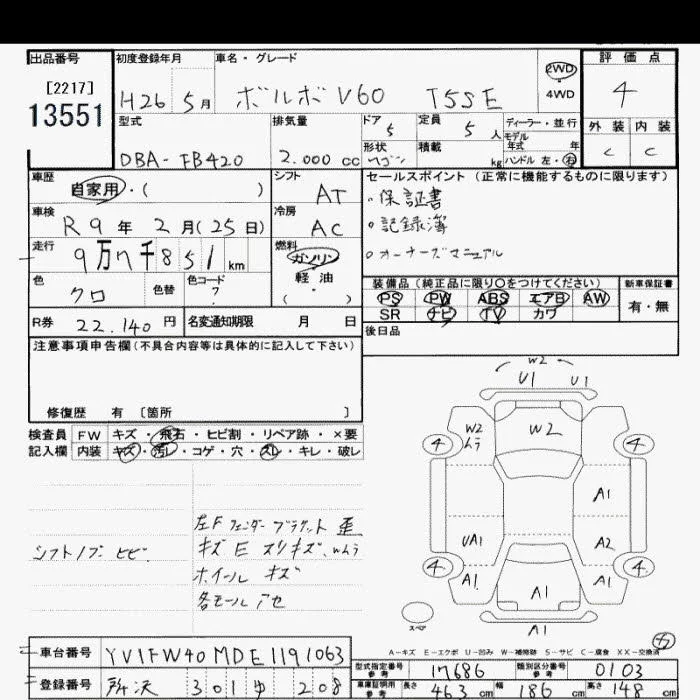 出品番号 初度登録年月 車名・グレード 2WD 4WD 評価点
[2217]
13551 H26 5月 ボルボ V60 T5SE 4
型式 排気量 ドア 5 定員 5人 ディーラー・並行 外装 内装
モデル年式 年
DBA-FB420 2.000cc 形状 ワゴン 積載 kg ハンドル 左・右 C C
車歴 自家用・( ) シフト AT セールスポイント (正常に機能するものに限ります)
車検 R9年2月(25日) 冷房 AC 。保証書
。記録簿
走行 9万7千851km 燃料 ガソリン 。オーナーズマニュアル
軽油・
( )
色 クロ 色替 色コード 装備品(純正品に限り○をつけてください) 新車保証書
PS PW ABS エアB AW 有・無
R券 22.140円 名変通知期限 月 日 SR ナビ TV カワ
注意事項申告欄(不具合内容等は具体的に記入して下さい) 後日品
修復歴 有 [箇所 ]
検査員 FW キズ・飛石・ヒビ割・リペア跡・×要
記入欄 内装 キズ・汚レ・コゲ・穴・スレ・キレ・破レ
左F フェンダー ブラケット 歪
シフトノブ ヒビ キズ E スリキズ、Wムラ
ホイール キズ
各モール アセ
W2
U1 U1
W2 ムラ W2
4 4
A1
UA1 A2
4 4
A1 A1 A1
スペア A1
A-キズ E-エクボ U-凹み W-補修跡 S-サビ C-腐食 XX-交換済
車台番号 YV1FW40MDE1191063
型式指定番号 参考 17686 類別区分番号 参考 0103
登録番号 所沢 301 ゆ 208
車庫証明用 参考 長さ 463cm 幅 186cm 高さ 148cm